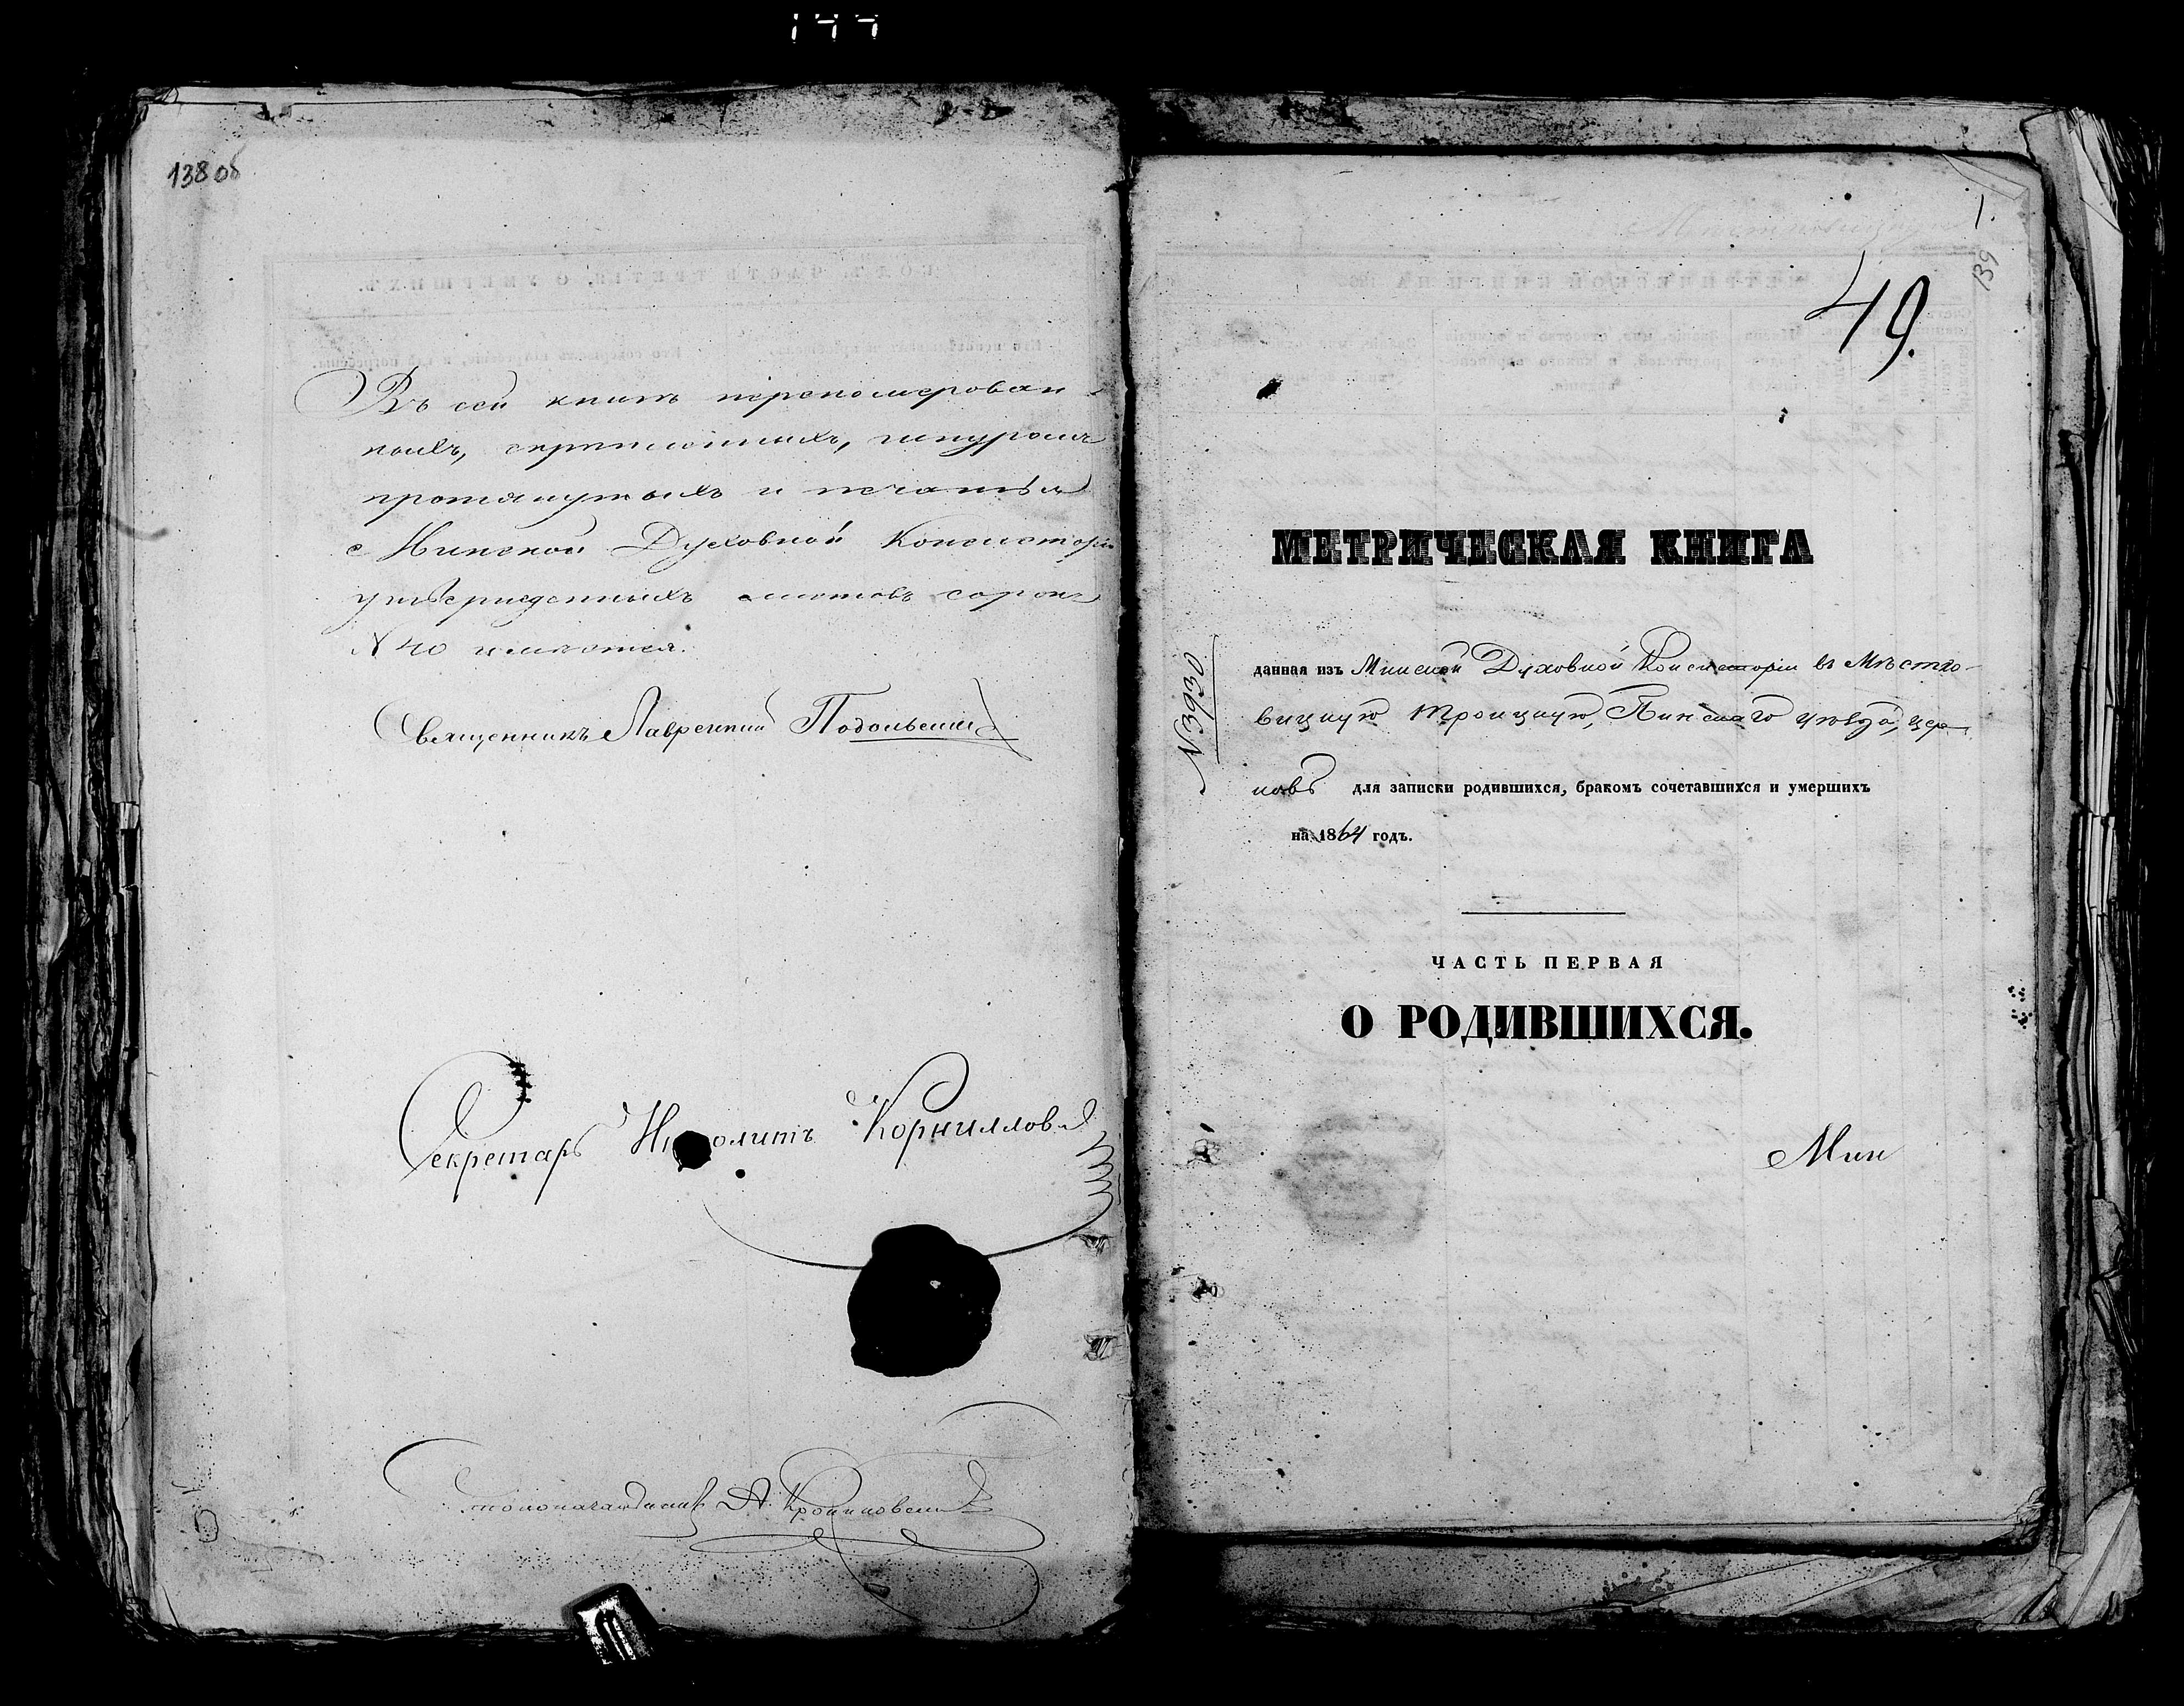 177
138 об
Въ сей книгѣ переномерован-
ныхъ, скрѣпленныхъ, шнуромъ
протянутыхъ и печатью
Минской Духовной Консисторіи
утвержденныхъ листовъ сорокъ
№ 40 имѣется.
Священникъ Лаврентий Подольский
Секретарь Иполитъ Корниловъ
Столоначальникъ А.
1.
139
49.
МЕТРИЧЕСКАЯ КНИГА
№ 3930
данная изъ Минской Духовной Консисторіи въ Мѣстко-
вицкую Троицкую, Пинскаго уѣзда, цер-
ковь для записки родившихся, бракомъ сочетавшихся и умершихъ
на 1864 годъ.
ЧАСТЬ ПЕРВАЯ
О РОДИВШИХСЯ.
Мин